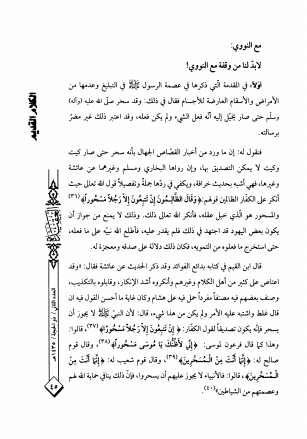 مع النووي:
لابدّ لنا من وقفة مع النووي!
أولاً، في المقدمة التي ذكرها في عصمة الرسول ﷺ في التبليغ وعدمها من
الأمراض والأسقام العارضة للأجسام فقال في ذلك: وقد سحر صلى الله عليه (وآله)
وسلّم حتى صار يخيّل إليه أنّه فعل الشيء ولم يكن فعله، وقد اعتبر ذلك غير مضرّ
برسالته.
فنقول له: إن ما ورد من أخبار القصّاص الجهال بأنه سحر حتى صار كيت
وكيت لا يمكن التصديق بها، وإن رواها البخاري ومسلم وغيرهما عن عائشة
وغيرها، فهي أشبه بحديث خرافة، ويكفي في ردّها جملةً وتفصيلاً قول الله تعالى حيث
أنكر على الكفّار الظالمين قولهم: ﴿وَقَالَ الظَّالِمُونَ إِنْ تَتَّبِعُونَ إِلاَّ رَجُلاً مَسْحُوراً﴾ (٣٦)
والمسحور هو الذي خبل عقله، فأنكر الله تعالى ذلك. وذلك لا يمنع من جواز أن
يكون بعض اليهود قد اجتهد في ذلك فلم يقدر عليه، فأطلع الله نبيّه على ما فعله،
حتى استخرج ما فعلوه من التمويه، فكان ذلك دلالة على صدقه ومعجزة له.
قال ابن القيم في كتابه بدائع الفوائد وقد ذكر الحديث عن عائشة فقال: «وقد
اعتاص على كثير من أهل الكلام وغيرهم وأنكروه أشد الإنكار، وقابلوه بالتكذيب،
وصنف بعضهم فيه مصنفاً مفرداً حمل فيه على هشام وكان غاية ما أحسن القول فيه ان
قال غلط واشتبه عليه الأمر ولم يكن من هذا شيء، قال: لأن النبيّ ﷺ لا يجوز أن
يسحر فإنّه يكون تصديقاً لقول الكفّار: ﴿إِنْ تَتَّبِعُونَ إِلاَّ رَجُلاً مَسْحُوراً﴾ (٣٧)، قالوا:
وهذا كما قال فرعون لموسى: ﴿إِنِّي لأَظُنُّكَ يَا مُوسَى مَسْحُوراً﴾ (٣٨)، وقال قوم
صالح له: ﴿إِنَّمَا أَنْتَ مِنْ الْمُسَحَّرِينَ﴾ (٣٩)، وقال قوم شعيب له: ﴿إِنَّمَا أَنْتَ مِنْ
الْمُسَحَّرِينَ﴾، قالوا: فالأنبياء لا يجوز عليهم أن يسحروا، فإنّ ذلك ينافي حماية الله لهم
وعصمتهم من الشياطين» (٤٠).
العدد الثاني / ذو الحجة / ١٤٣٥هـ
٤٥